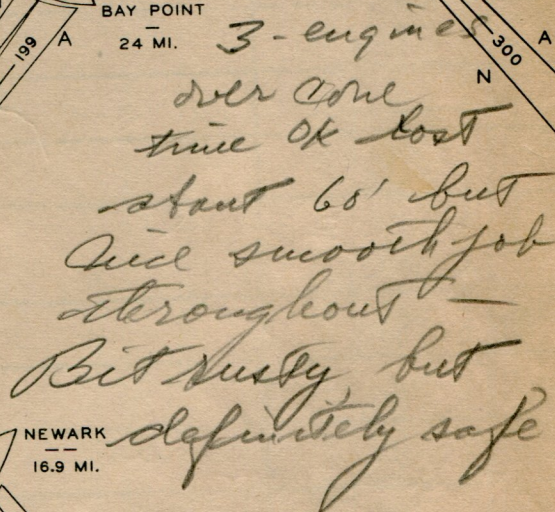 BAY POINT
24 MI.
199
A
300
A
N
3-engines
over cone
time OK lost
60' but
nice smooth job
throughout —
Bit rusty, but
definitely safe
NEWARK
16.9 MI.